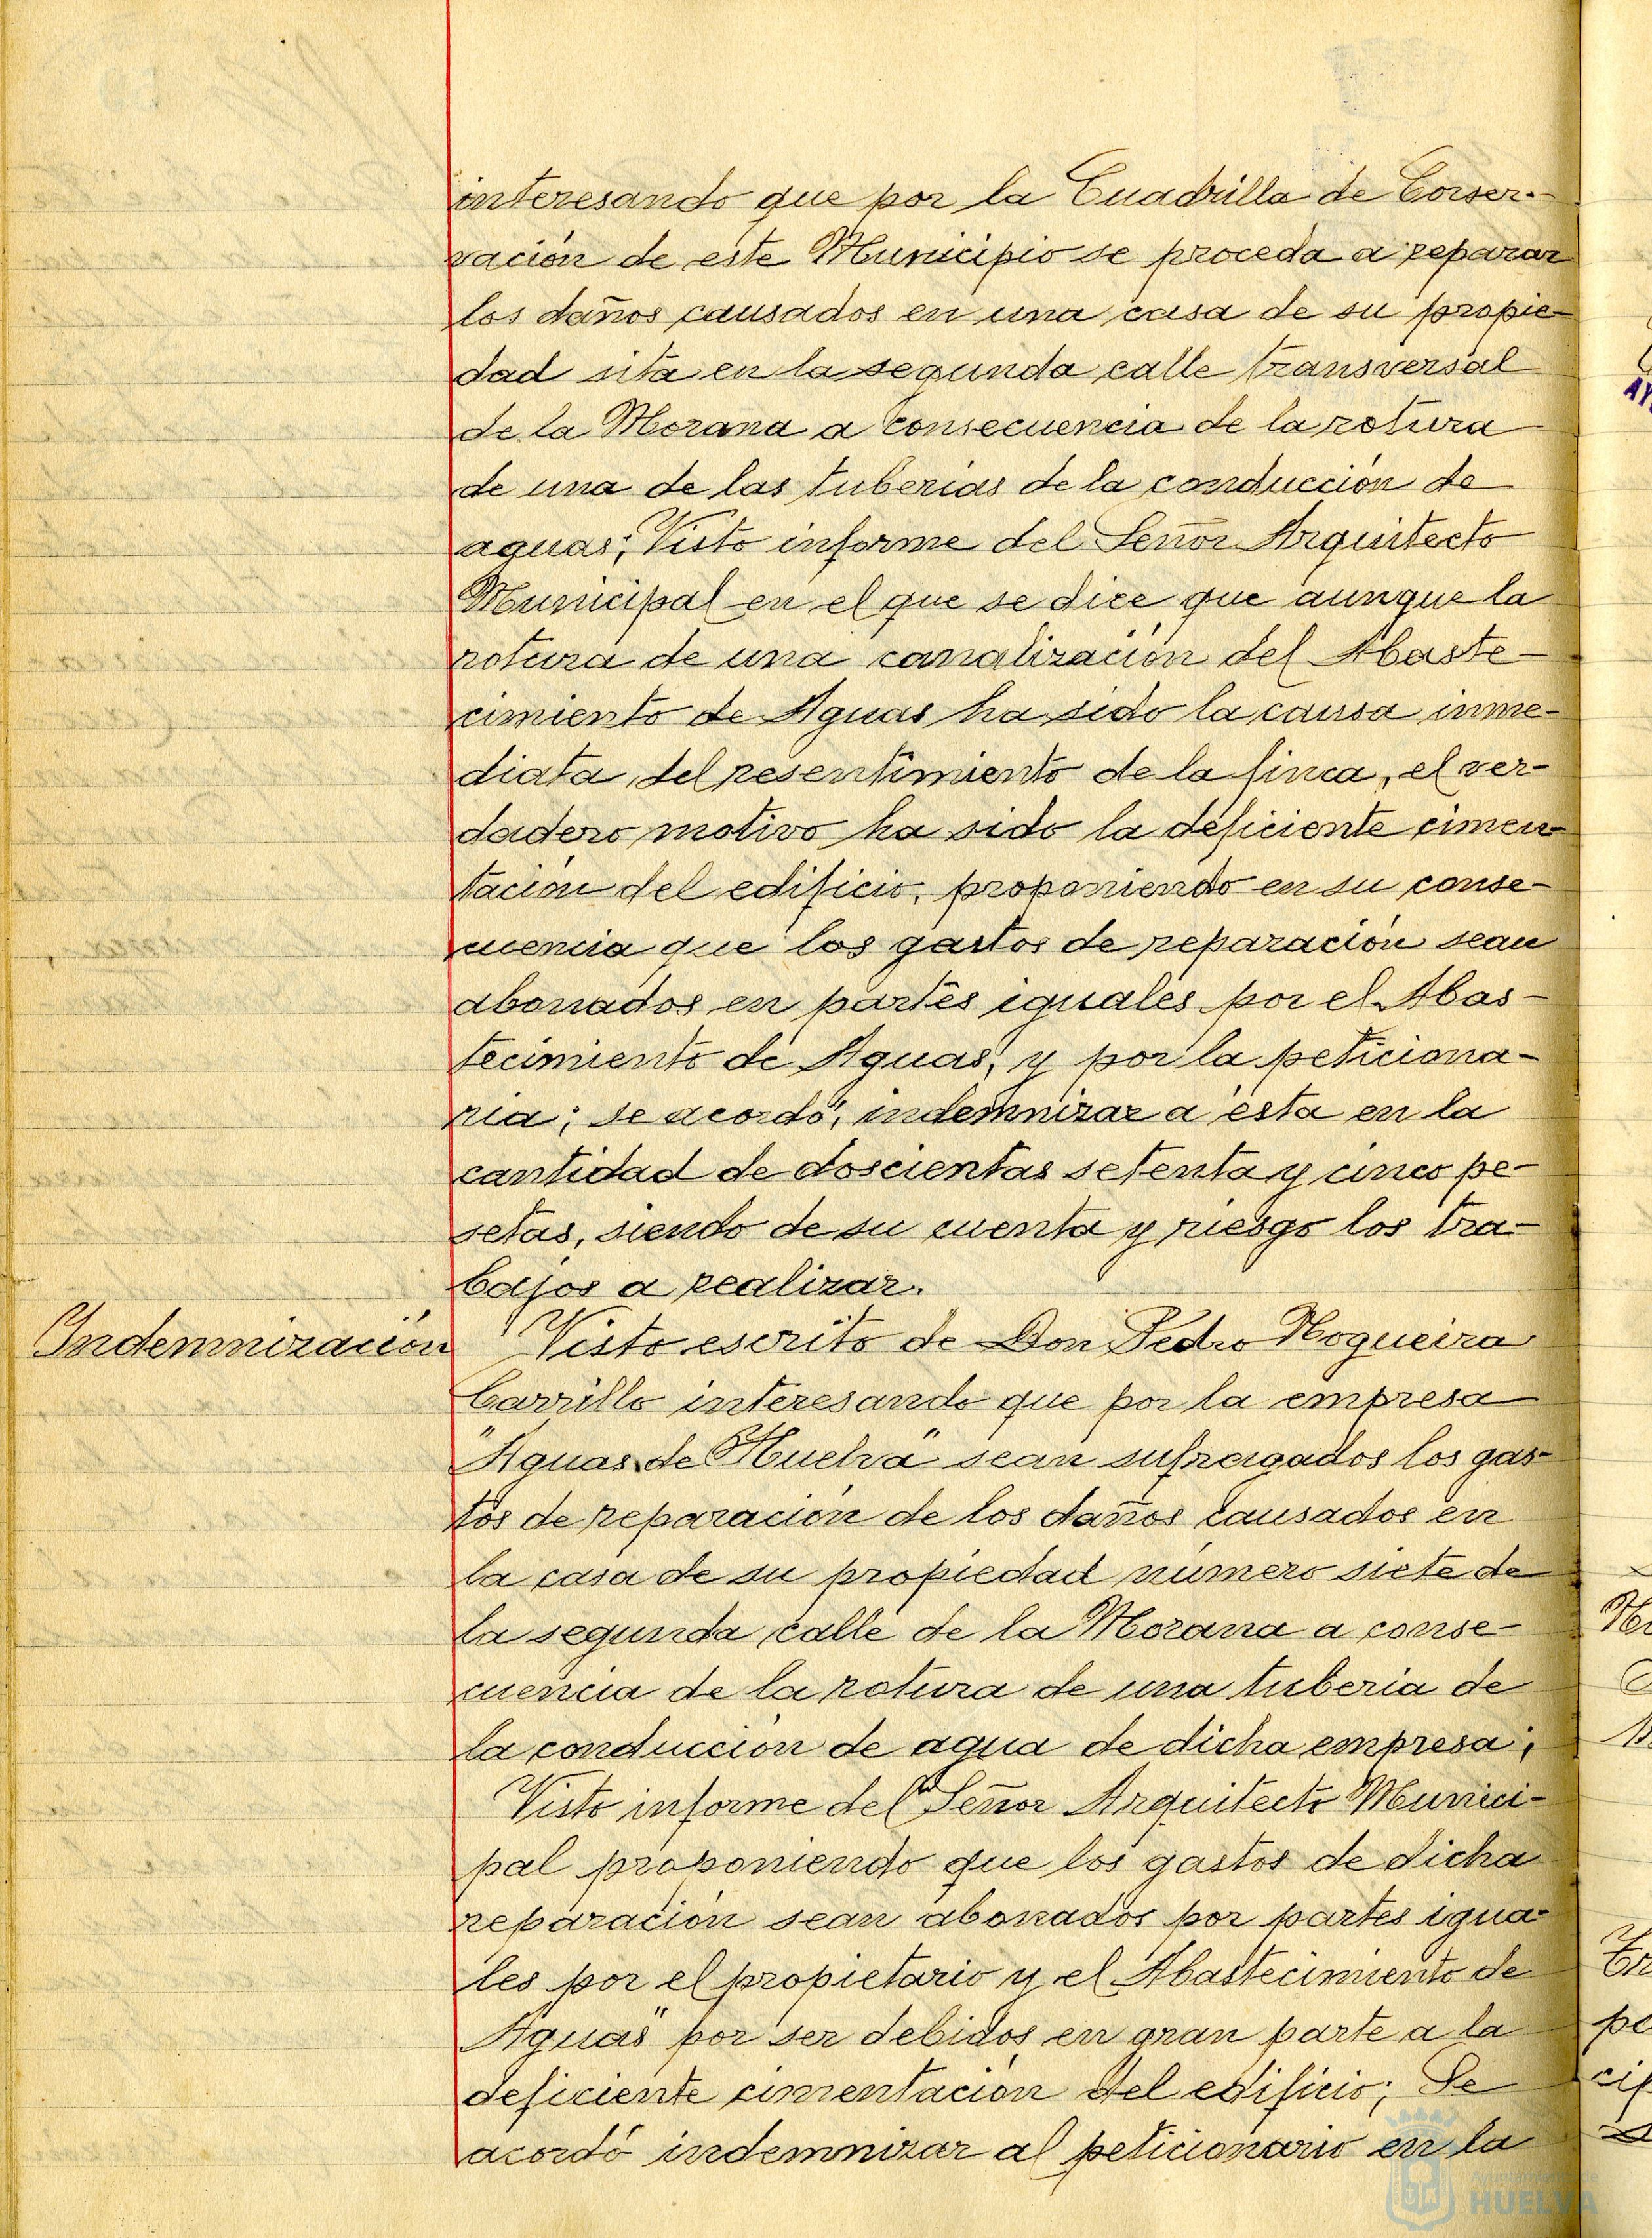 interesando que por la Cuadrilla de Conser-
vación de este Municipio se proceda a reparar
los daños causados en una casa de su propie-
dad sita en la segunda calle transversal
de la Morana a consecuencia de la rotura
de una de las tuberias de la conducción de
aguas; Visto informe del Señor Arquitecto
Municipal en el que se dice que aunque la
rotura de una canalización del Abaste-
cimiento de Aguas ha sido la causa inme-
diata del resentimiento de la finca, el ver-
dadero motivo ha sido la deficiente cimen
tacion del edificio, proponiendo en su conse-
cuencia que los gastos de reparación sean
abonados en partes iguales por el Abas-
tecimiento de Aguas, y por la peticiona-
ria; se acordó, indemnizar a esta en la
cantidad de doscientas setenta y cinco pe-
setas, siendo de su cuenta y riesgo los tra-
bajos a realizar.
Indemnización Visto escrito de Don Pedro Nogueira
Carrillo interesando que por la empresa
"Aguas de Huelva" sean sufragados los gas-
tos de reparación de los daños causados en
la casa de su propiedad número siete de
la segunda calle de la Morana a conse-
cuencia de la rotura de una tuberia de
la conduccion de agua de dicha empresa;
Visto informe del Señor Arquitecto Munici-
pal proponiendo que los gastos de dicha
reparación sean abonados por partes igua-
les por el propietario y el Abastecimiento de
Aguas" por ser debidos en gran parte a la
deficiente cimentacion del edificio; Se
acordó indemnizar al peticionario en la
Ayuntamiento de
HUELVA